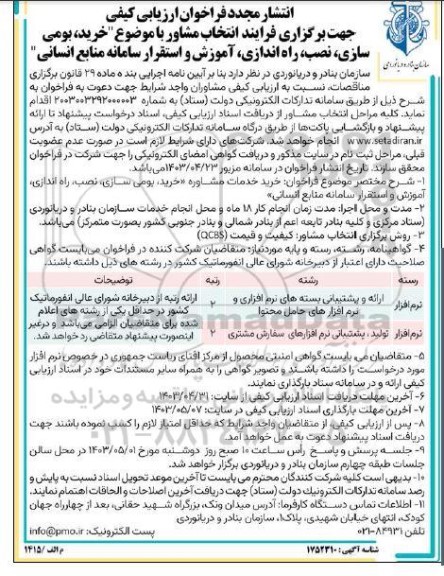 انتشار مجدد فراخوان ارزیابی کیفی
جهت برگزاری فرایند انتخاب مشاور با موضوع "خرید، بومی
سازی، نصب، راه اندازی، آموزش و استقرار سامانه منابع انسانی"
سازمان بنادر و دریانوردی
سازمان بنادر و دریانوردی در نظر دارد بنا بر آیین نامه اجرایی بند ه ماده ۲۹ قانون برگزاری
مناقصات، نسبت به ارزیابی کیفی مشاوران واجد شرایط جهت دعوت به فراخوان به
شرح ذیل از طریق سامانه تدارکات الکترونیکی دولت (ستاد) به شماره ۲۰۰۳۰۰۳۲۹۲۰۰۰۰۰۳ اقدام
نماید. کلیه مراحل انتخاب مشاور از دریافت اسناد ارزیابی کیفی، اسناد درخواست پیشنهاد تا ارائه
پیشنهاد و بازگشایی پاکت‌ها از طریق درگاه سامانه تدارکات الکترونیکی دولت (ستاد) به آدرس
www.setadiran.ir انجام خواهد شد. شرکت‌های دارای شرایط لازم است در صورت عدم عضویت
قبلی، مراحل ثبت نام در سایت مذکور و دریافت گواهی امضای الکترونیکی را جهت شرکت در فراخوان
محقق سازند. تاریخ انتشار فراخوان در سامانه مزبور ۱۴۰۳/۰۴/۲۳ می‌باشد.
۱- شرح مختصر موضوع فراخوان: خرید خدمات مشاوره «خرید، بومی سازی، نصب، راه اندازی،
آموزش و استقرار سامانه منابع انسانی»
۲- مدت و محل اجرا: مدت زمان انجام کار ۱۸ ماه و محل انجام خدمات سازمان بنادر و دریانوردی
(ستاد مرکزی و کلیه بنادر تابعه اعم از بنادر شمالی و بنادر جنوبی کشور بصورت متمرکز) می‌باشد.
۳- روش برگزاری انتخاب مشاور: کیفیت و قیمت (QCBS)
۴- گواهینامه، رشته، رسته و پایه موردنیاز: متقاضیان شرکت کننده در فراخوان می‌بایست گواهی
صلاحیت دارای اعتبار از دبیرخانه شورای عالی انفورماتیک کشور در رشته های ذیل داشته باشند
رسته رشته رتبه توضیحات
نرم‌افزار ارائه و پشتیبانی بسته های نرم افزاری و نرم افزار های حامل محتوا ۲
نرم‌افزار تولید، پشتیبانی نرم افزارهای سفارش مشتری ۲
ارائه رتبه از دبیرخانه شورای عالی انفورماتیک
کشور در حداقل یکی از رشته های اعلام
شده برای متقاضیان الزامی می‌باشد و درغیر
اینصورت پیشنهاد متقاضی رد خواهد شد.
۵- متقاضیان می بایست گواهی امنیتی محصول از مرکز افتای ریاست جمهوری در خصوص نرم افزار
مورد درخواست را داشته باشند و تصویر گواهی را به همراه سایر مستندات خود در اسناد ارزیابی
کیفی ارائه و در سامانه ستاد بارگذاری نمایند.
۶- آخرین مهلت دریافت اسناد ارزیابی کیفی از سایت: ۱۴۰۳/۰۴/۳۱
۷- آخرین مهلت بارگذاری اسناد ارزیابی کیفی در سایت: ۱۴۰۳/۰۵/۰۷
۸- پس از ارزیابی کیفی، از متقاضیان واجد شرایط که حداقل امتیاز لازم را کسب نموده باشند جهت
دریافت اسناد پیشنهاد دعوت به عمل خواهد آمد.
۹- جلسه پرسش و پاسخ رأس ساعت ۱۰ صبح روز دوشنبه مورخ ۱۴۰۳/۰۵/۰۱ در محل سالن
جلسات طبقه چهارم سازمان بنادر و دریانوردی برگزار خواهد شد.
۱۰- بدیهی است کلیه شرکت کنندگان محترم می بایست تا آخرین موعد تحویل اسناد نسبت به پایش و
رصد سامانه تدارکات الکترونیک دولت (ستاد) جهت دریافت آخرین اصلاحات و الحاقات اهتمام نمایند.
۱۱- اطلاعات تماس دستگاه کارفرما: آدرس میدان ونک، بزرگراه شهید حقانی، بعد از چهارراه جهان
کودک، انتهای خیابان شهیدی، پلاک۱، سازمان بنادر و دریانوردی
۰۲۱-۸۴۹۳۱ تلفن پست الکترونیک: info@pmo.ir
شناسه آگهی: ۱۷۵۲۳۱۰ م الف / ۱۴۱۵